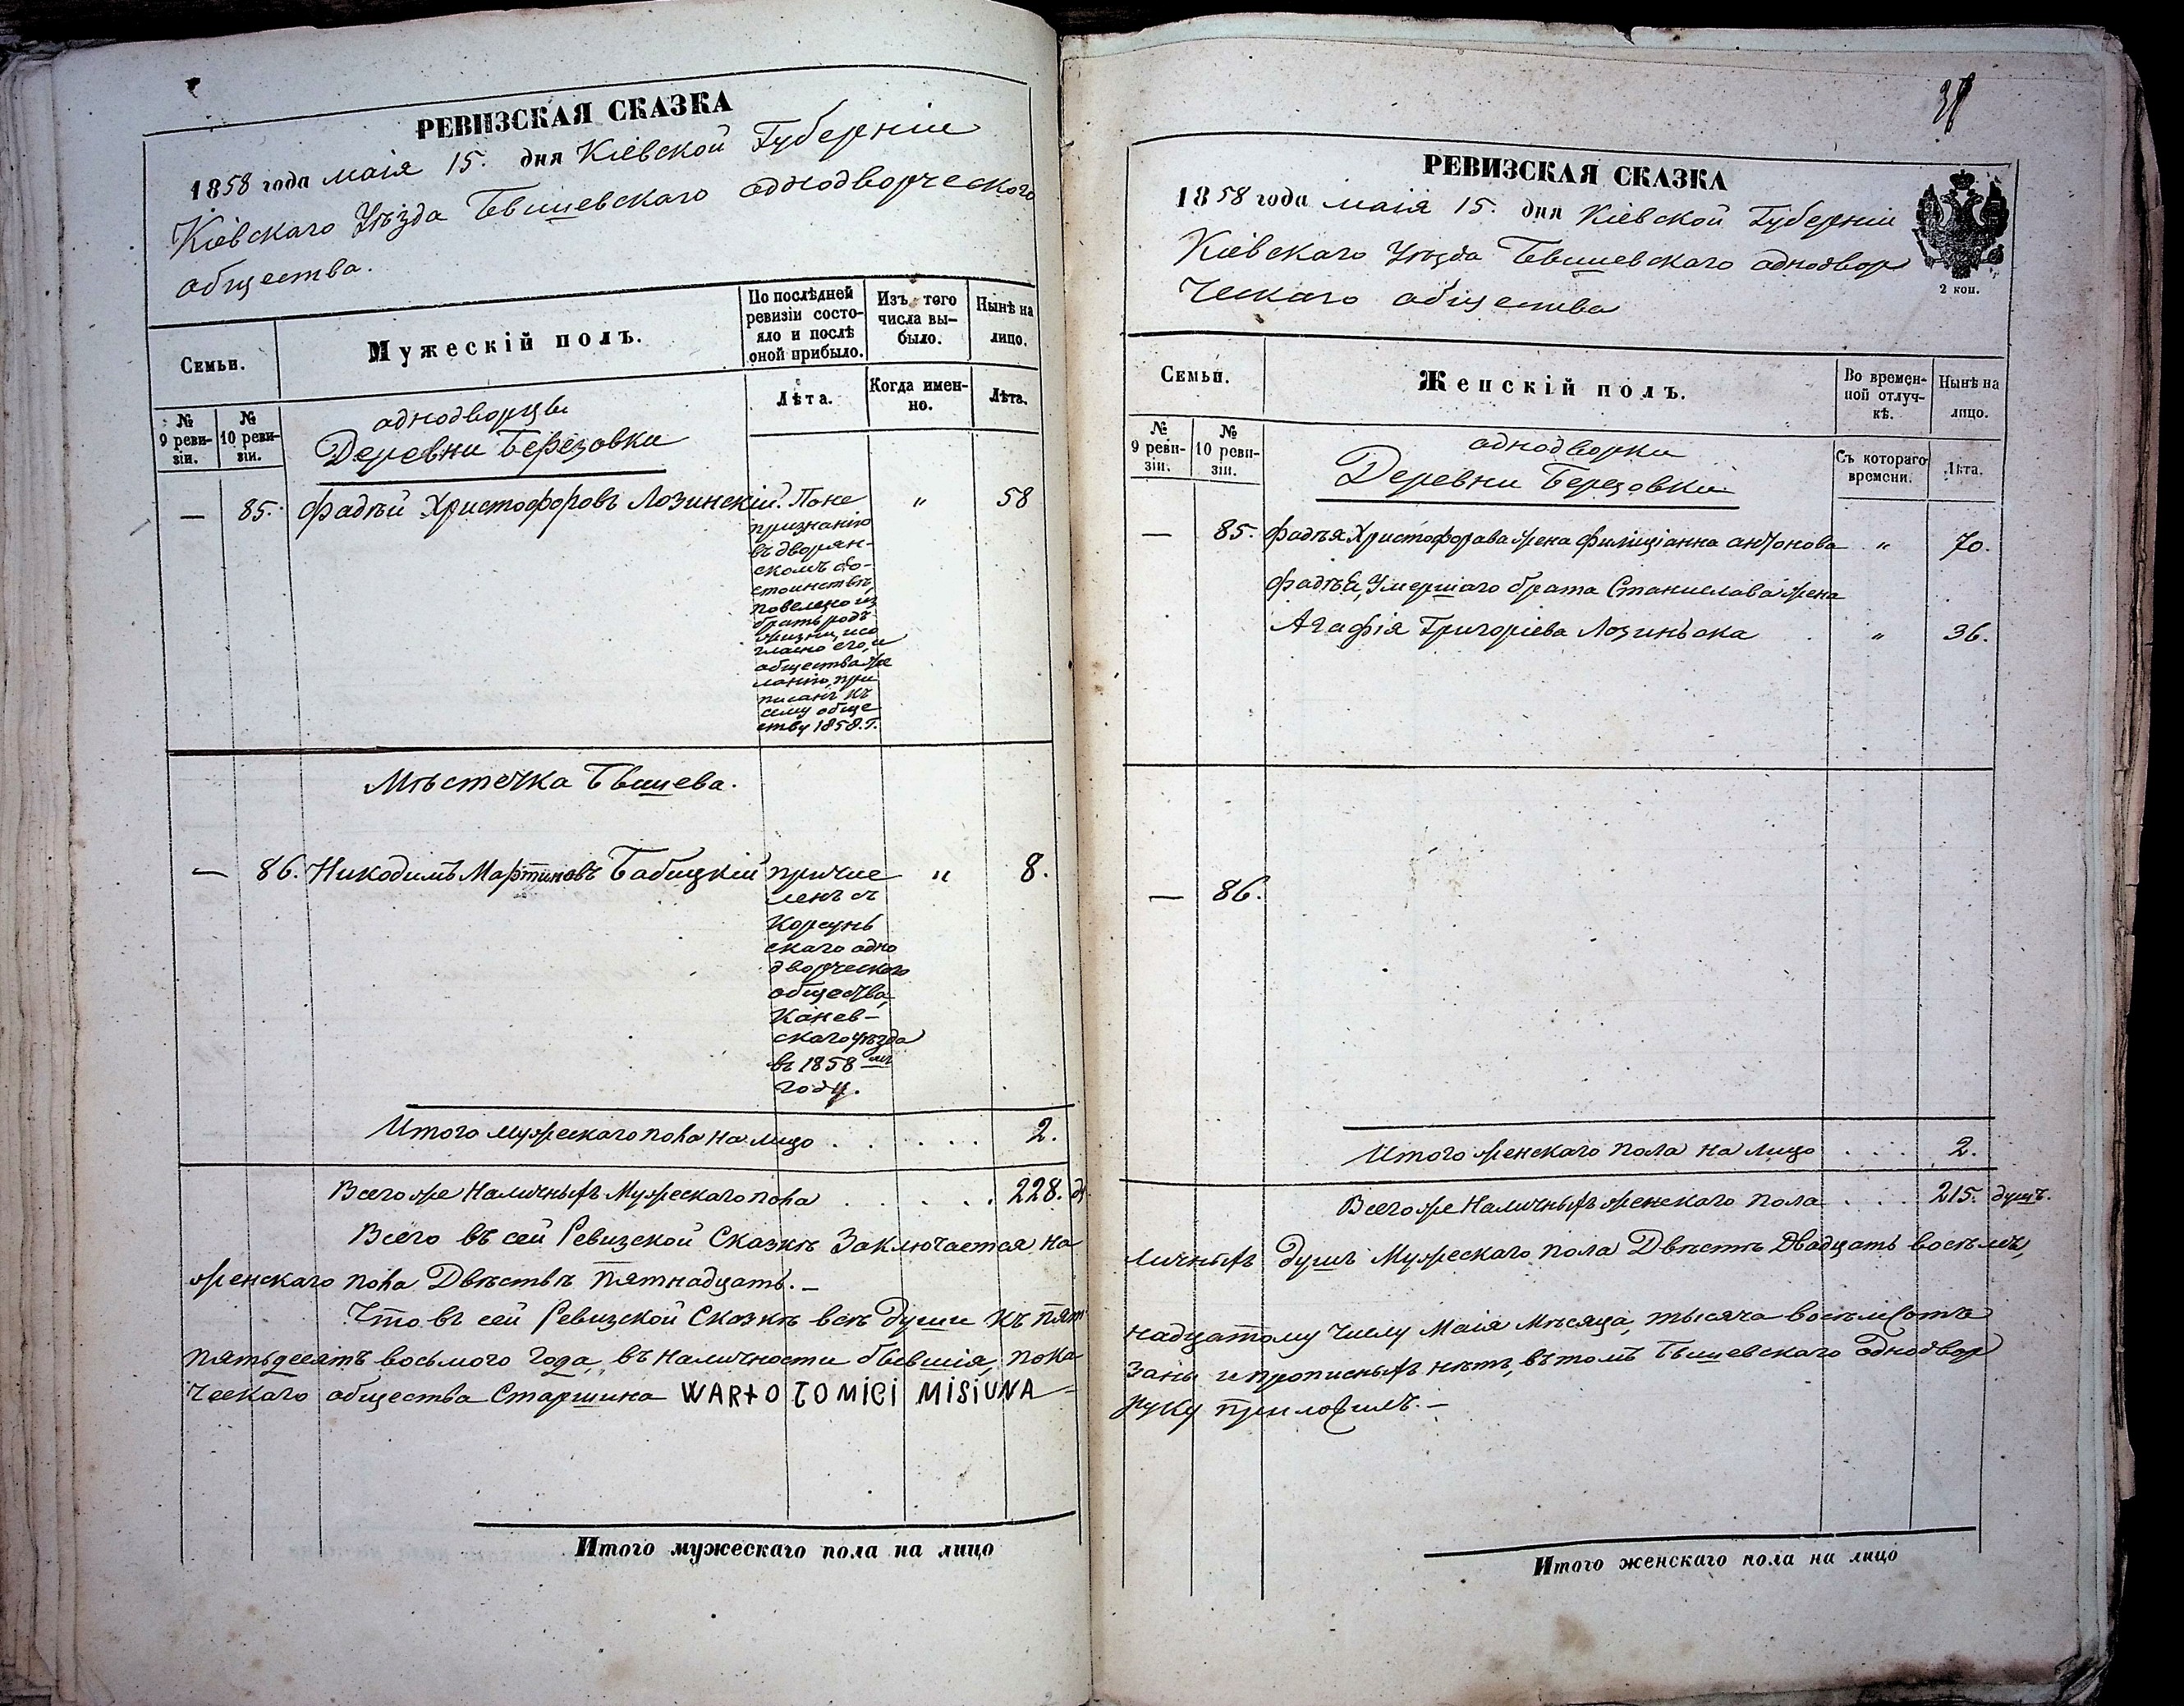 РЕВИЗСКАЯ СКАЗКА
1858 года маія 15. дня Кіевской Губерніи
Кіевскаго Уѣзда Бышевскаго однодворческого
общества.
Семьи.
Мужескій полъ.
По послѣдней ревизіи состояло и послѣ оной прибыло.
Изъ того числа выбыло.
Нынѣ на лицо.
№ 9 ревизіи.
№ 10 ревизіи.
однодворцы
Деревни Березовки
Лѣта.
Когда именно.
Лѣта.
— 85. Фадѣй Христофоровъ Лозинскій. По не " 58
признанію
въ дворян-
скомъ до-
стоинствѣ,
повелено из
брать родъ
жизни, и со
гласно его, и
общества же
ланію, при
писанъ къ
сему обще
ству 1858. г.
Мѣстечка Бышева.
— 86. Никодимъ Мартиновъ Бабицкій причис " 8.
ленъ съ
Корсунь
скаго одно
дворческого
общества,
Канев-
скаго уѣзда
въ 1858 мъ
году.
Итого мужескаго пола на лицо . . . . . . 2.
Всего же Наличныхъ Мужескаго пола . . . . . 228. д
Всего въ сей Ревизской Сказкѣ Заключается на
женскаго пола Двѣстѣ пятнадцать. —
Что въ сей Ревизской Сказкѣ всѣ души къ пят
пятьдесятъ восьмого года, въ наличности бывшія, пока
ческаго общества Старшина WARTO TOMICI MISIUNA
Итого мужескаго пола на лицо
38
РЕВИЗСКАЯ СКАЗКА
1858 года маія 15. дня Кіевской Губерніи
Кіевскаго Уѣзда Бышевскаго однодвор
ческаго общества
2 коп.
Семьи.
Женскій полъ.
Во временной отлучкѣ.
Нынѣ на лицо.
№ 9 ревизіи.
№ 10 ревизіи.
однодворки
Деревни Березовки
Съ котораго времени.
Лѣта.
— 85. Фадѣя Христофорова жена Филиціанна Антонова " 70.
Фадѣя, Умершаго брата Станислава жена
Агафія Григоріева Лозиньска . " 36.
— 86.
Итого женскаго пола на лицо . . . 2.
Всего же Наличныхъ женскаго пола . . . 215. душъ.
личныхъ душъ Мужескаго пола Двѣстѣ Двадцать восѣмъ,
надцатому Числу Маія Мѣсяца, тысяча восѣмсотъ
заны и прописныхъ нѣтъ, въ томъ Бышевскаго однодвор
руку приложилъ. —
Итого женскаго пола на лицо